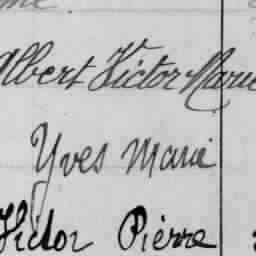 Albert Victor Marie
Yves Marie
Victor Pierre